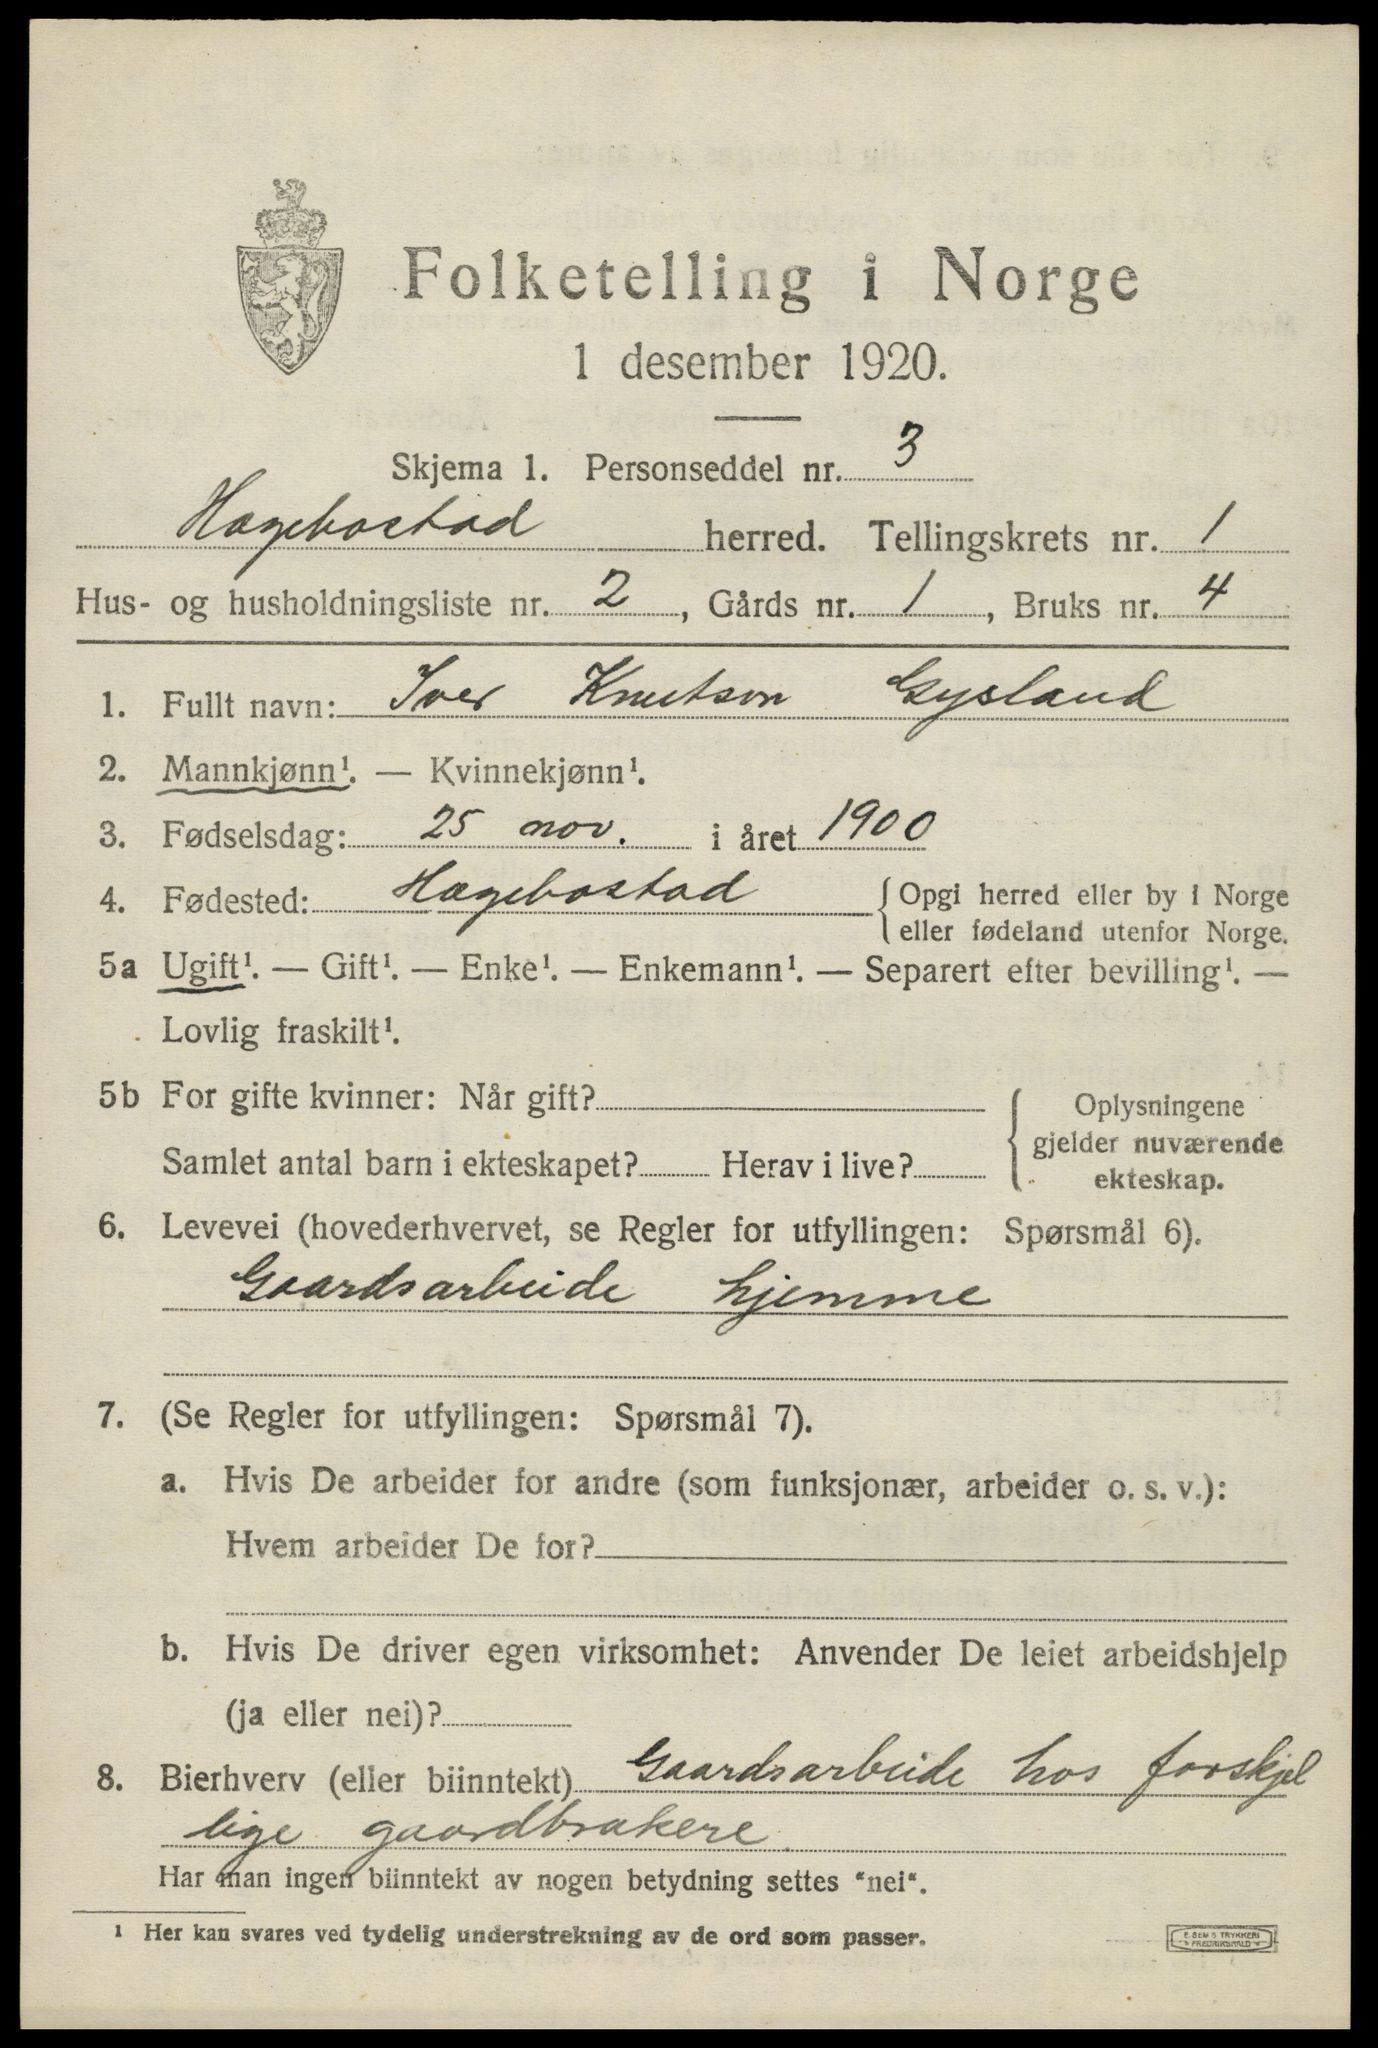 Folketelling i Norge
1 desember 1920.
Skjema 1. Personseddel nr. 3
Hægebostad herred. Tellingskrets nr. 1
Hus- og husholdningsliste nr. 2, Gårds nr. 1, Bruks nr. 4
1. Fullt navn: Iver Knutson Gysland
2. Mannkjønn¹. — Kvinnekjønn¹.
3. Fødselsdag: 25 nov. i året 1900
4. Fødested: Hægebostad {Opgi herred eller by i Norge
eller fødeland utenfor Norge.
5a Ugift¹. — Gift¹. — Enke¹. — Enkemann¹. — Separert efter bevilling¹. —
Lovlig fraskilt¹.
5b For gifte kvinner: Når gift? { Oplysningene
gjelder nuværende
Samlet antal barn i ekteskapet? Herav i live?
ekteskap.
6. Levevei (hovederhvervet, se Regler for utfyllingen: Spørsmål 6).
Gaardsarbeide hjemme
7. (Se Regler for utfyllingen: Spørsmål 7).
a. Hvis De arbeider for andre (som funksjonær, arbeider o. s. v.):
Hvem arbeider De for?
b. Hvis De driver egen virksomhet: Anvender De leiet arbeidshjelp
(ja eller nei)?
8. Bierhverv (eller biinntekt) Gaardsarbeide hos forskjel
lige gaardbrukere
Har man ingen biinntekt av nogen betydning settes "nei".
¹ Her kan svares ved tydelig understrekning av de ord som passer.
E. SEM'S TRYKKERI
FREDRIKSHALD